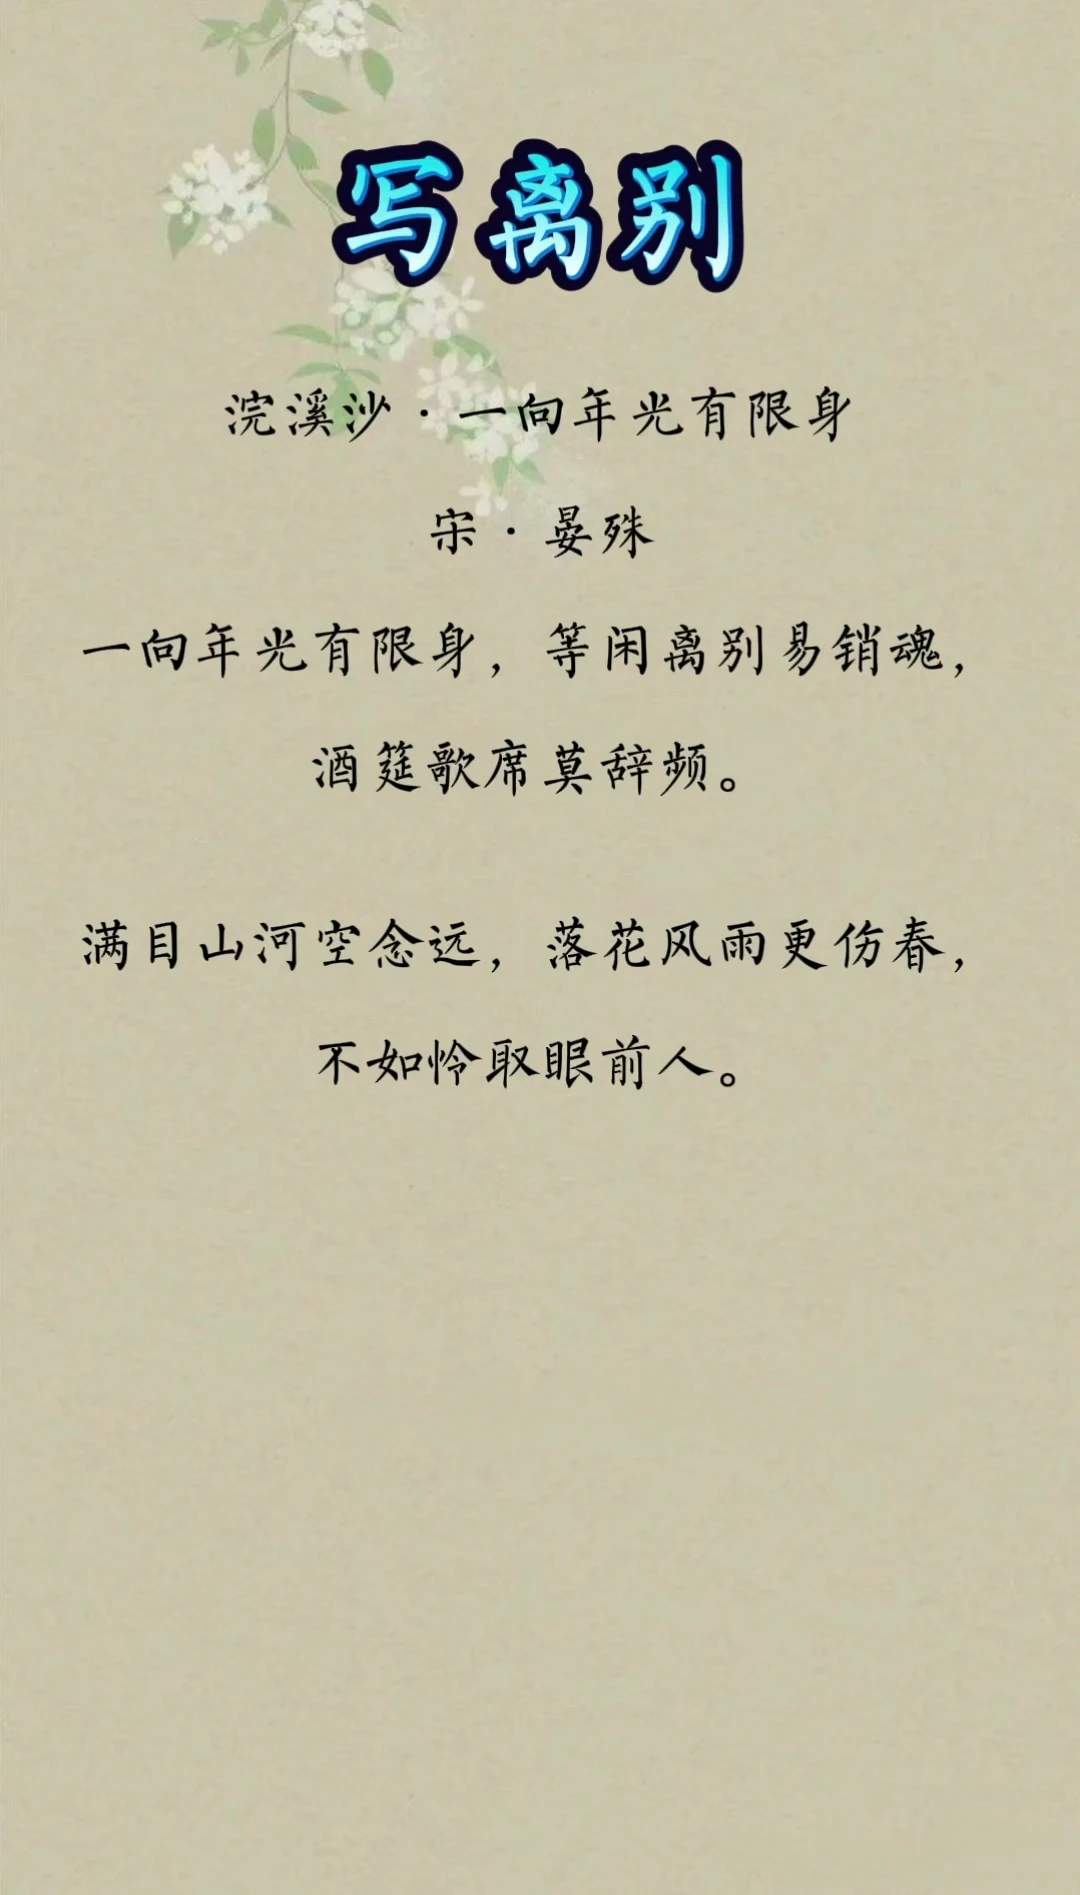 写离别
浣溪沙·一向年光有限身
宋·晏殊
一向年光有限身，等闲离别易销魂，
酒筵歌席莫辞频。
满目山河空念远，落花风雨更伤春，
不如怜取眼前人。